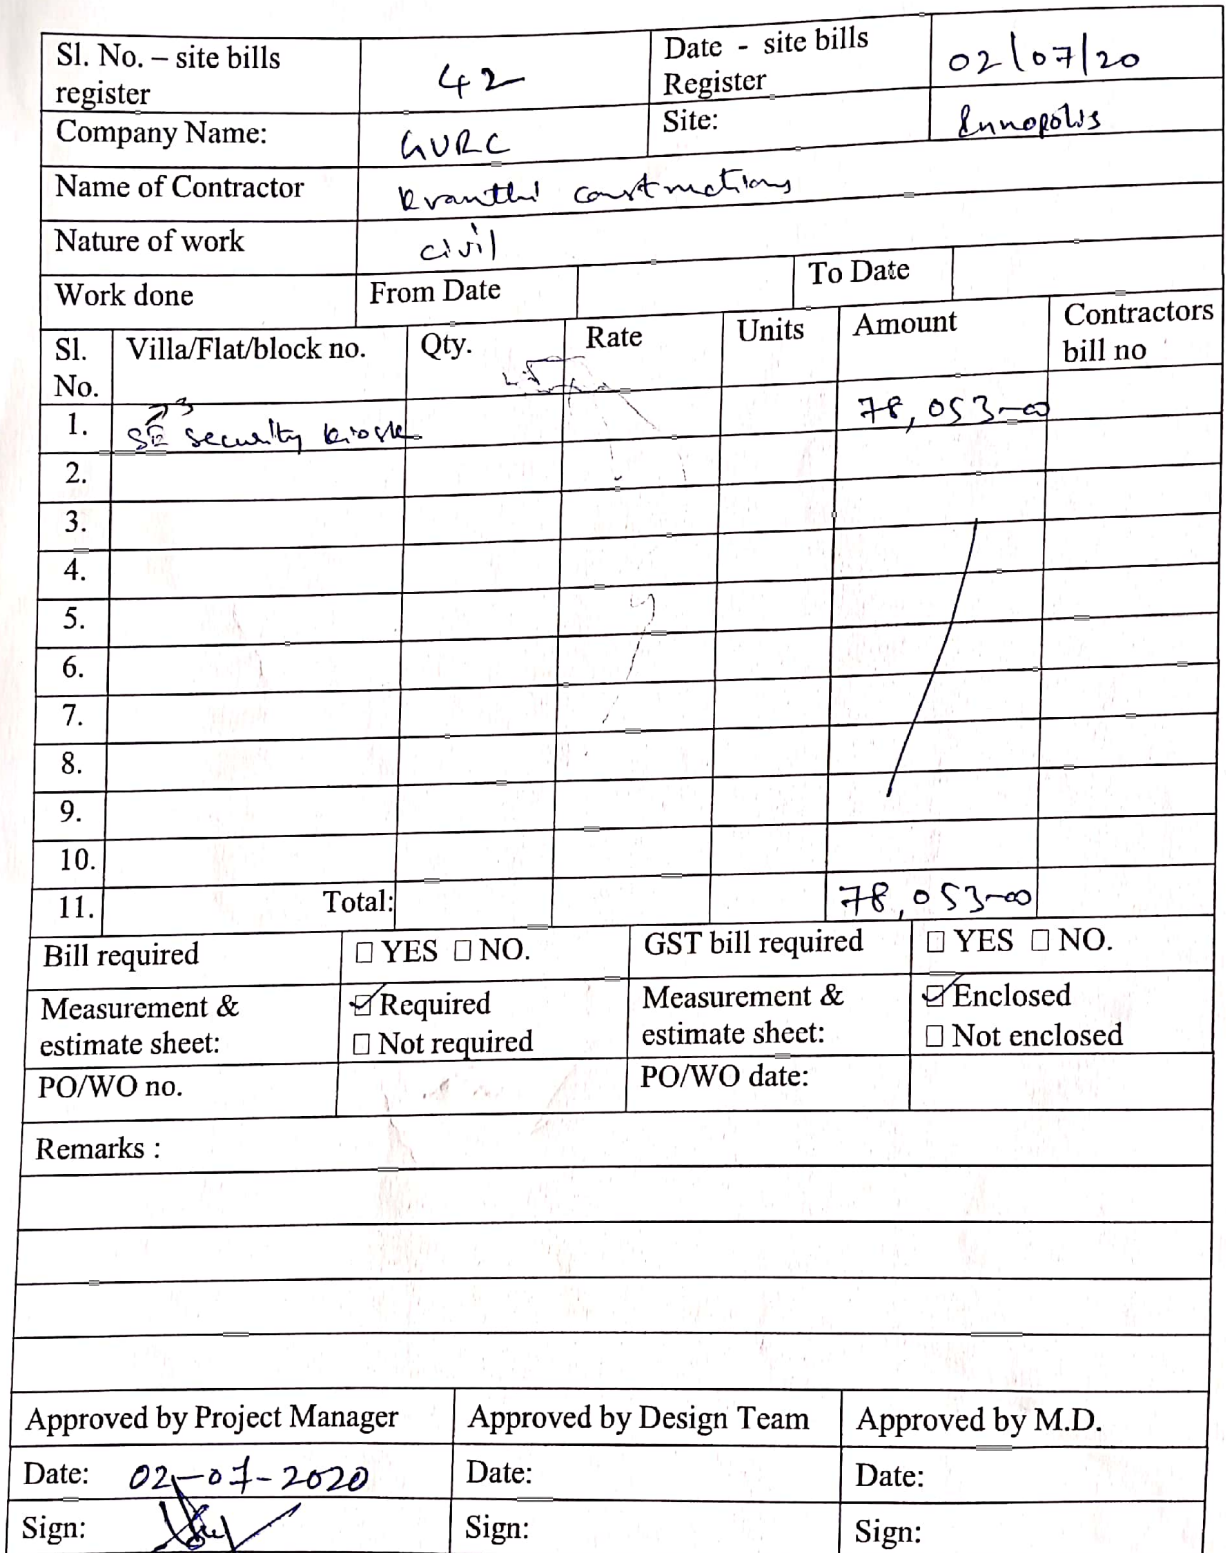 Sl. No. – site bills register 42 Date - site bills Register 02/07/20
Company Name: GVRC Site: Innopolis
Name of Contractor Kranthi constructions
Nature of work civil
Work done From Date To Date
Sl. No. Villa/Flat/block no. Qty. Rate Units Amount Contractors bill no
1. security kiosk 78,053-00
2.
3.
4.
5.
6.
7.
8.
9.
10.
11. Total: 78,053-00
Bill required ☐ YES ☐ NO. GST bill required ☐ YES ☐ NO.
Measurement & estimate sheet: ☑ Required ☐ Not required Measurement & estimate sheet: ☑ Enclosed ☐ Not enclosed
PO/WO no. PO/WO date:
Remarks :
Approved by Project Manager Approved by Design Team Approved by M.D.
Date: 02-07-2020 Date: Date:
Sign: Sign: Sign: